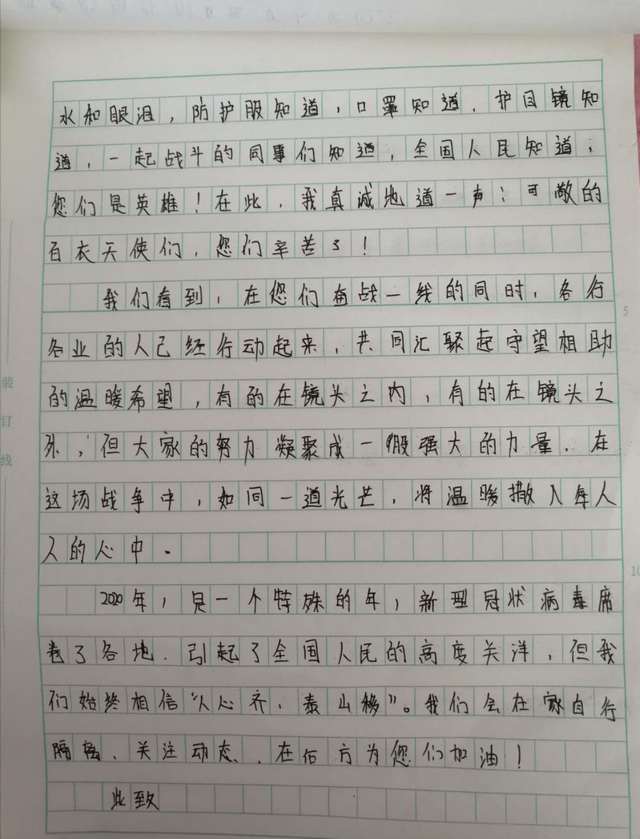 水和眼泪，防护服知道，口罩知道，护目镜知
道，一起战斗的同事们知道，全国人民知道，
您们是英雄！在此，我真诚地道一声：可敬的
白衣天使们，您们辛苦了！
我们看到，在您们奋战一线的同时，各行
各业的人已经行动起来，共同汇聚起守望相助
的温暖希望，有的在镜头之内，有的在镜头之
外，但大家的努力凝聚成一股强大的力量。在
这场战争中，如同一道光芒，将温暖撒入每人
人的心中。
2020年，是一个特殊的年，新型冠状病毒席
卷了各地．引起了全国人民的高度关注，但我
们始终相信“人心齐，泰山移”。我们会在家自行
隔离、关注动态、在后方为您们加油！
此致
装
订
线
5
10